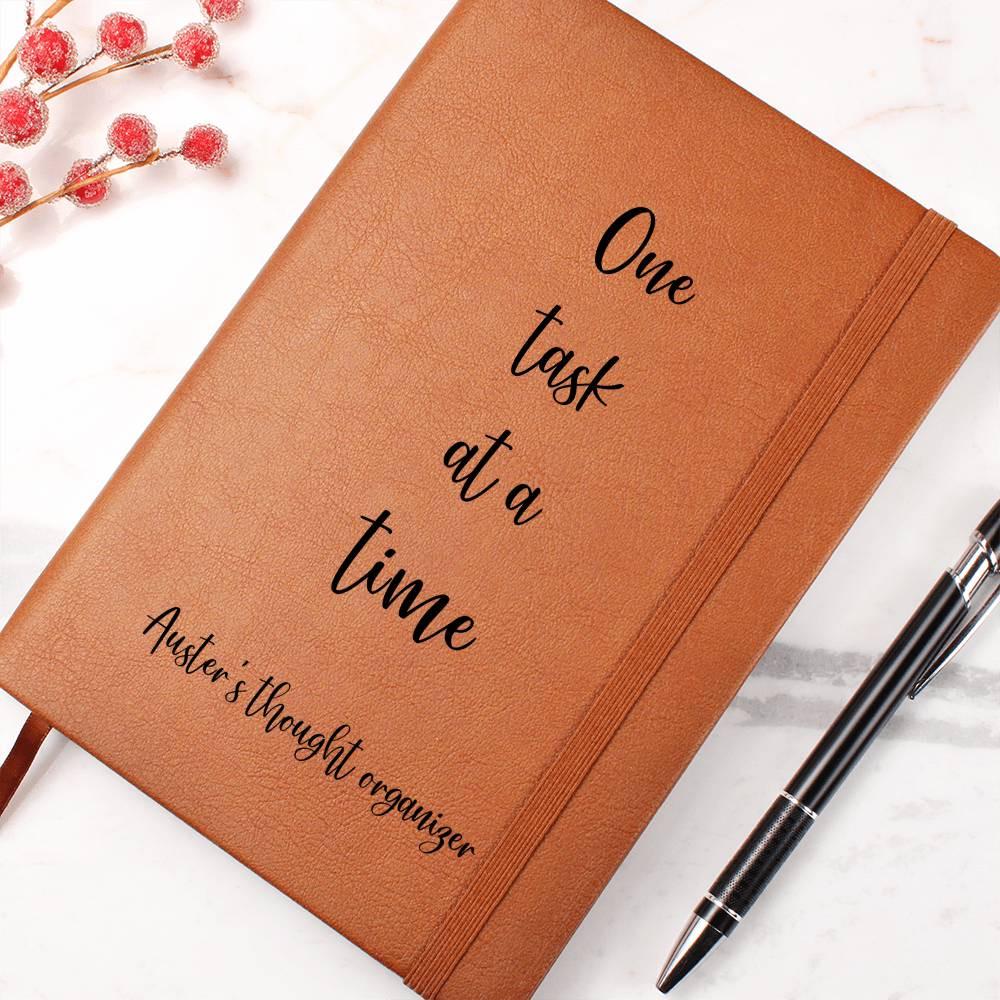 One
task
at a
time
Auster's thought organizer